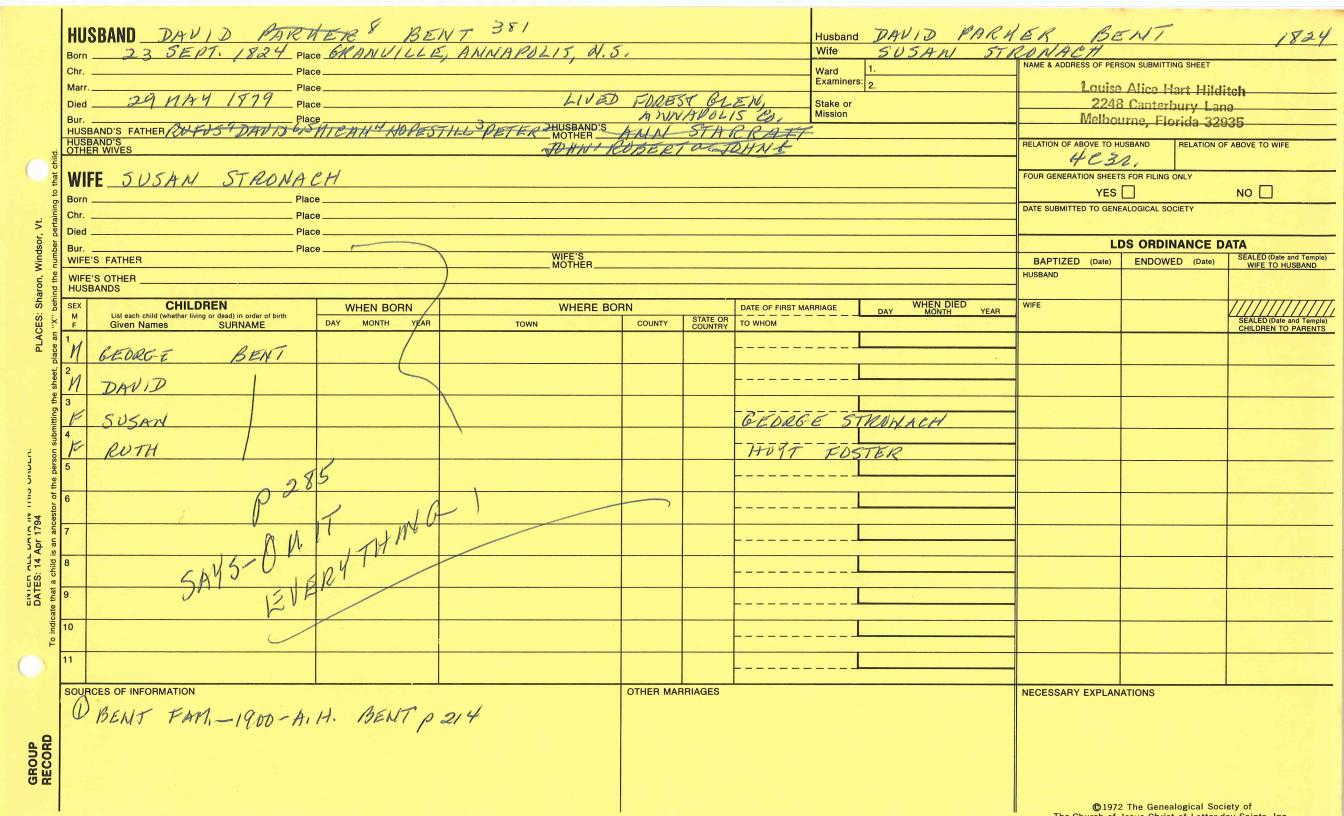 HUSBAND DAVID PARKER 8 BENT 381
Born 23 SEPT. 1824 Place GRANVILLE, ANNAPOLIS, N.S.
Chr. Place
Marr. Place
Died 29 MAY 1879 Place LIVED FOREST GLEN,
Bur. Place ANNAPOLIS Co.
HUSBAND'S FATHER RUFUS DAVID MICAH 4 HOPESTILL 3 PETER 2 HUSBAND'S MOTHER ANN STARRATT
HUSBAND'S OTHER WIVES JOHN ROBERT JOHN
Husband DAVID PARKER BENT 1824
Wife SUSAN STRONACH
Ward Examiners: 1.
2.
Stake or Mission
NAME & ADDRESS OF PERSON SUBMITTING SHEET
Louise Alice Hart Hilditch
2248 Canterbury Lane
Melbourne, Florida 32935
RELATION OF ABOVE TO HUSBAND RELATION OF ABOVE TO WIFE
4C3r.
FOUR GENERATION SHEETS FOR FILING ONLY
YES NO
DATE SUBMITTED TO GENEALOGICAL SOCIETY
WIFE SUSAN STRONACH
Born Place
Chr. Place
Died Place
Bur. Place
WIFE'S FATHER WIFE'S MOTHER
WIFE'S OTHER HUSBANDS
LDS ORDINANCE DATA
BAPTIZED (Date) ENDOWED (Date) SEALED (Date and Temple) WIFE TO HUSBAND
HUSBAND
WIFE
SEALED (Date and Temple) CHILDREN TO PARENTS
SEX M F
CHILDREN
List each child (whether living or dead) in order of birth
Given Names SURNAME
WHEN BORN
DAY MONTH YEAR
WHERE BORN
TOWN COUNTY STATE OR COUNTRY
DATE OF FIRST MARRIAGE
TO WHOM
WHEN DIED
DAY MONTH YEAR
1 M GEORGE BENT
2 M DAVID
3 F SUSAN GEORGE STRONACH
4 F RUTH HOYT FOSTER
5
6
7
8
9
10
11
P 285
SAYS-OMIT
EVERYTHING!
SOURCES OF INFORMATION
① BENT FAM.-1900-A.H. BENT p 214
OTHER MARRIAGES
NECESSARY EXPLANATIONS
©1972 The Genealogical Society of
The Church of Jesus Christ of Latter-day Saints, Inc.
PLACES: Sharon, Windsor, Vt.
ENTER ALL DATA IN THIS ORDER:
DATES: 14 Apr 1794
To indicate that a child is an ancestor of the person submitting the sheet, place an "X" behind the number pertaining to that child.
GROUP RECORD